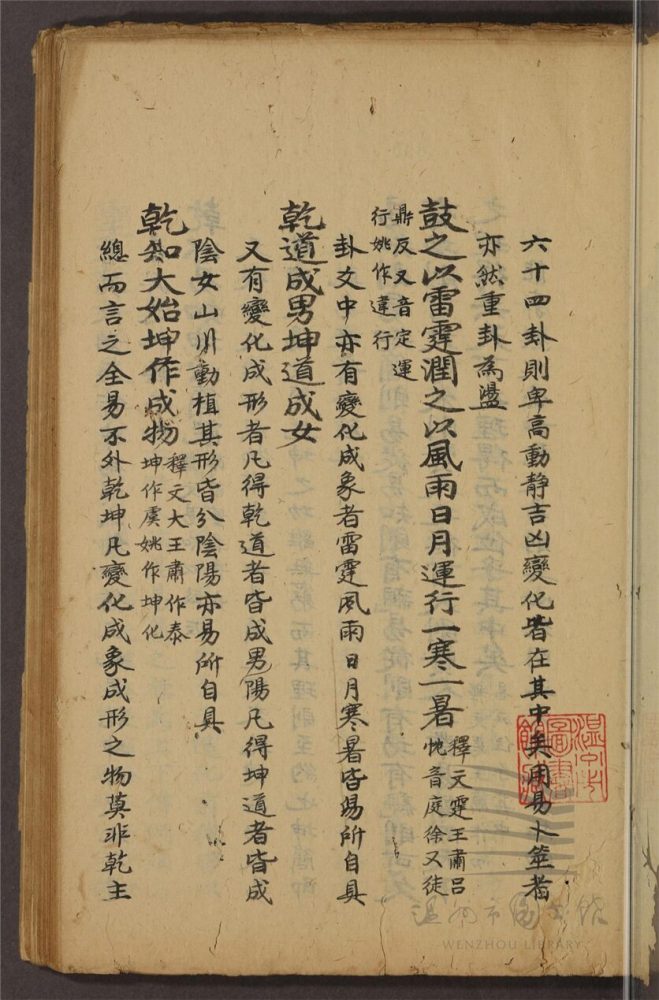 六十四卦則卑高動静吉凶變化皆在其中矣用易卜筮者
亦然重卦為盪
鼓之以雷霆潤之以風雨日月運行一寒一暑
釋文霆王肅吕
忱音庭徐又徒
鼎反又音定運
行姚作違行
卦爻中亦有變化成象者雷霆風雨日月寒暑皆易所自具
乾道成男坤道成女
又有變化成形者凡得乾道者皆成男陽凡得坤道者皆成
陰女山川動植其形皆分陰陽亦易所自具
乾知大始坤作成物
釋文大王肅作泰
坤作虞姚作坤化
總而言之全易不外乾坤凡變化成象成形之物莫非乾主
温州市圖書館
WENZHOU LIBRARY